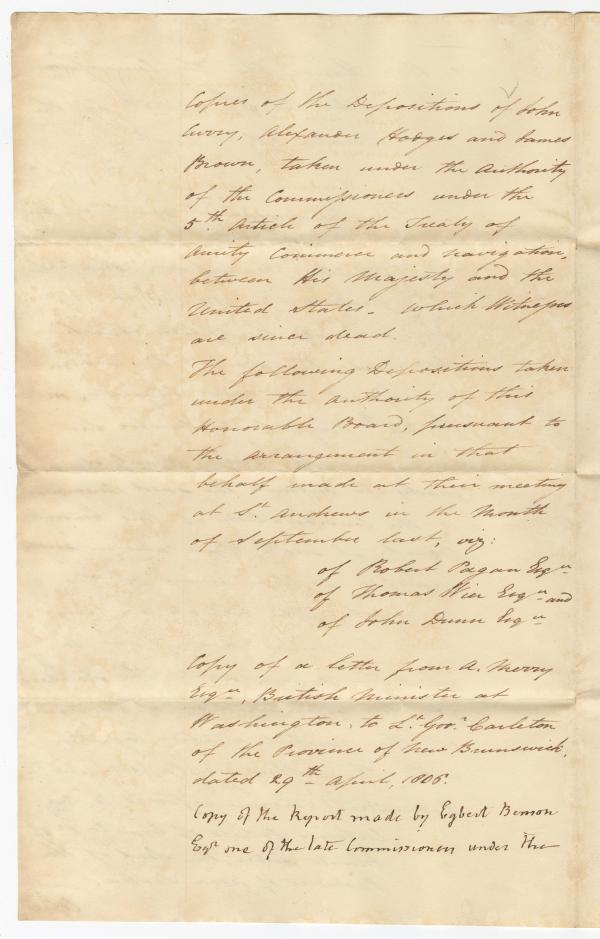 Copies of the Depositions of John
Curry, Alexander Hodges and James
Brown, taken under the Authority
of the Commissioners under the
5th Article of the Treaty of
Amity Commerce and navigation,
between His Majesty and the
United States. which Witnesses
are since dead.
The following Depositions taken
under the authority of this
Honorable Board, pursuant to
the arrangement in that
behalf made at their meeting
at St. Andrews in the Month
of September last, viz:
of Robert Pagan Esqr
of Thomas Wier Esqr and
of John Dunn Esqr
Copy of a letter from A. Merry
Esqr, British Minister at
Washington to Lt. Govr. Carleton
of the Province of New Brunswick,
dated 29th April, 1806.
Copy of the Report made by Egbert Benson
Esqr one of the late Commissioners under the